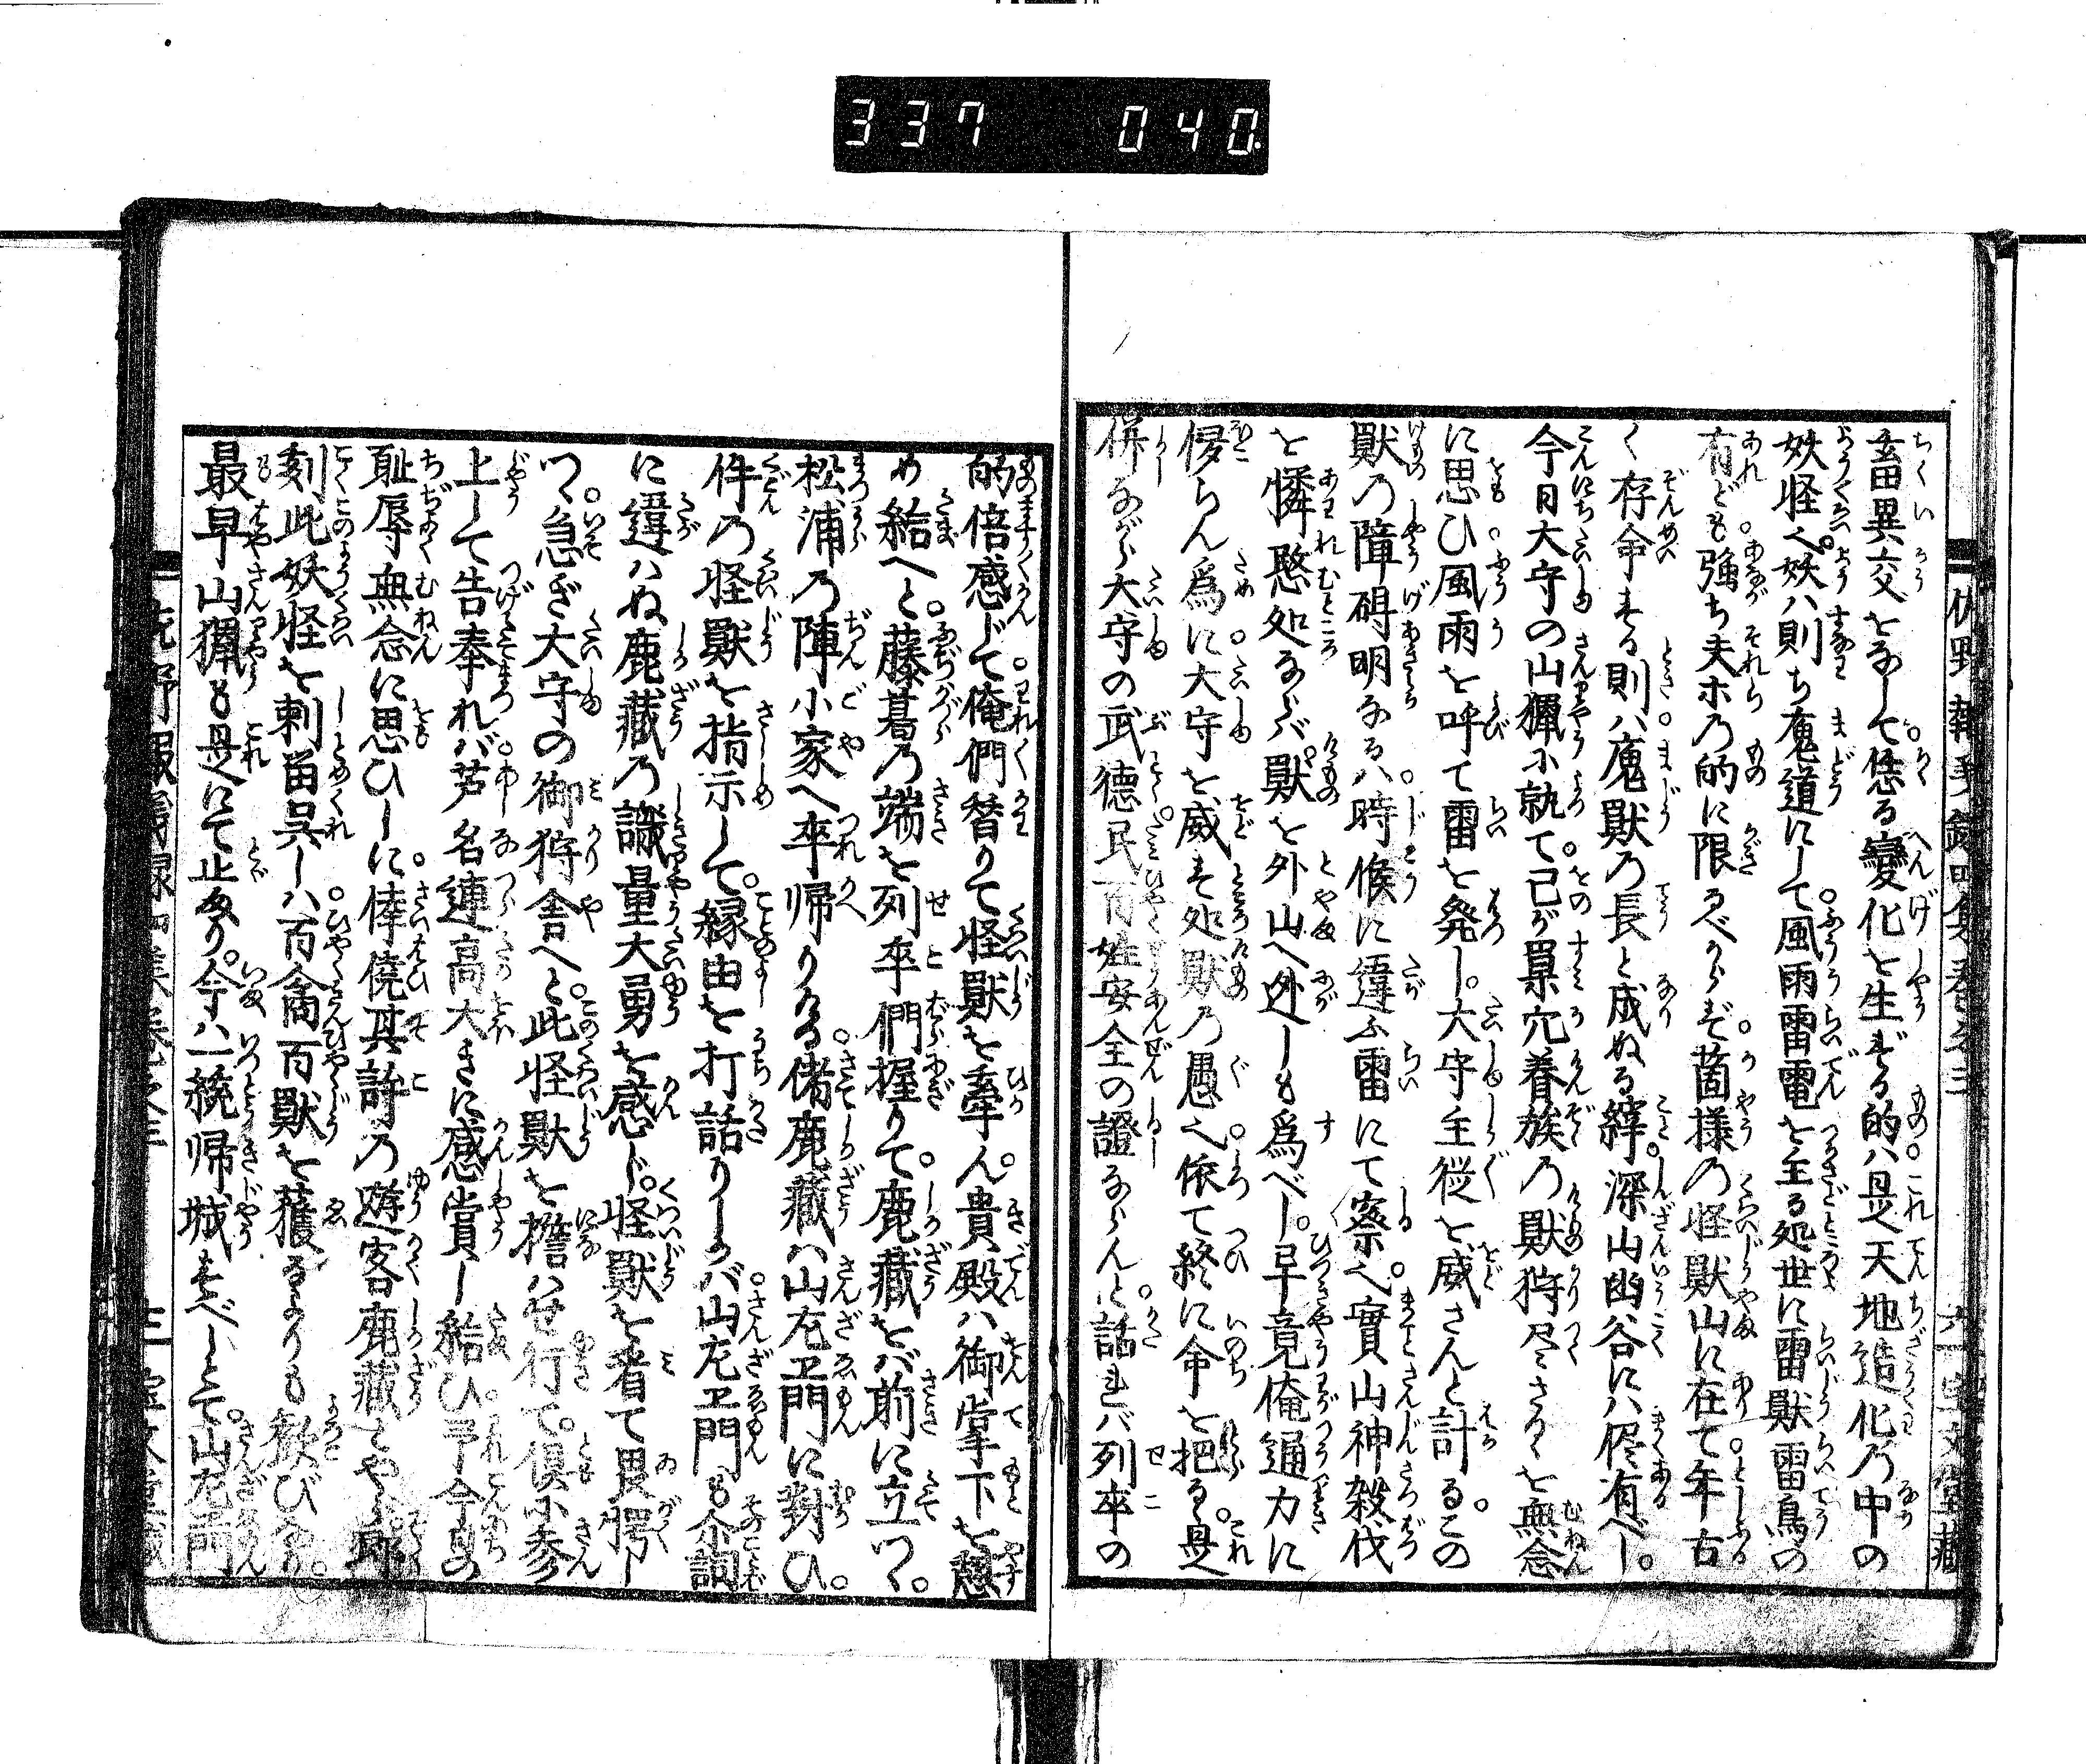 337 040
畜異交をなして。恁る變化を生ずる的ハ。是天地造化乃中の
妖怪也。妖ハ則ち魔道にして。風雨雷電を主る処世に雷獣雷鳥の
有ども。強ち夫ホ乃的に限るべからず。箇様の怪獣山に在て。年古
く存命する則ハ。魔獣乃長と成ぬる縡。深山幽谷にハ侭有べし。
今日大守の山猟に執て。己が巣穴眷族乃獣狩尽さるを無念
に思ひ。風雨を呼て雷を発し。大守主從を威さんと計る。この
獣乃障碍明なるハ。時候に違ふ雷にて察る也。實山神殺伐
を憐愍処ならバ。獣を外山へ迯しも為べし。早竟俺通力に
侈らん為に。大守を威す処獣乃愚也。依て終に命を把る。是
併ながら大守の武徳。民百姓安全の證ならんと。話れバ列卒の
的倍感じて。俺們替りて怪獣を牽ん。貴殿ハ御掌下を憩
め給へと。藤葛乃端を列卒們握りて。鹿藏をバ前に立つゝ。
松浦乃陣小家へ卒帰りける。偖鹿藏ハ山左エ門に對ひ。
件乃怪獣を指示して。縁由を打話りしかバ。山左エ門も介詞
に違ハぬ鹿藏乃識量大勇を感じ。怪獣を看て畏愕し
つゝ。急ぎ大守の御狩舎へと。此怪獣を擔ハせ行て。倶小参
上して告奉れバ。芦名連高大きに感賞し給ひ。予今日の
耻辱無念に思ひしに。倖僥其許乃遊客鹿藏とやら。
刻此妖怪を刺留呉しハ。百禽百獣を獲るよりも歓びなり。
最早山猟も是にて止なり。今ハ一統帰城すべしとて。山左エ門